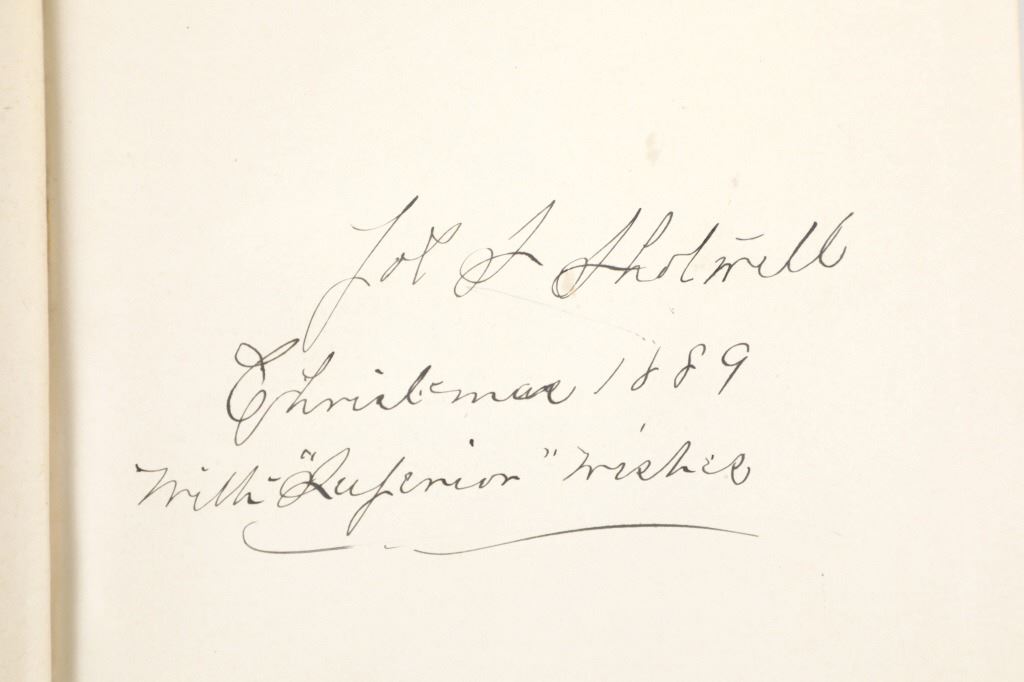 Jos S Shotwell
Christmas 1889
With "Superior" wishes